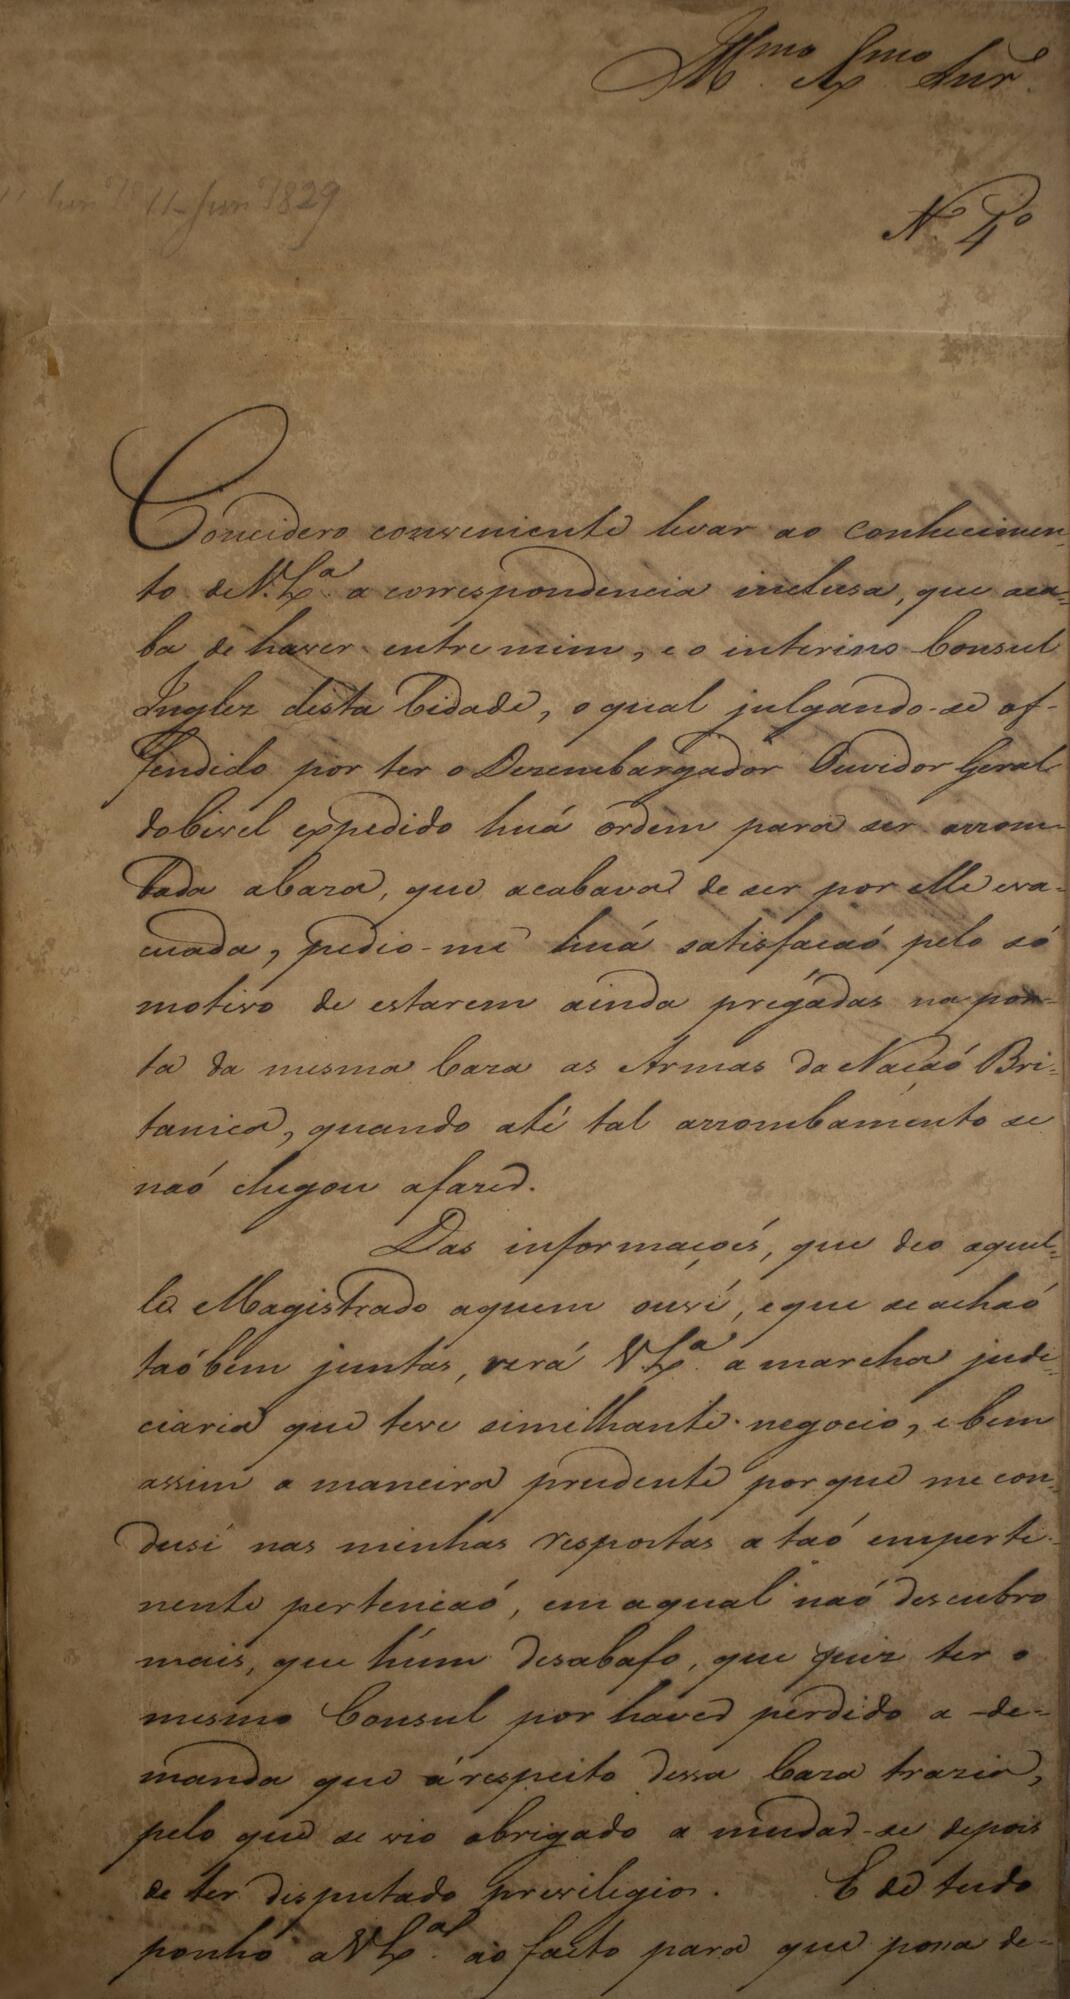 Illmo. Exmo. Snr.
11 Jun 1829
N. 4o
Concidero conveniente levar ao conhecimen-
to de V. Exa. a correspondencia inclusa, que aca-
ba de haver entre mim, e o interino Consul
Inglez desta Cidade, o qual julgando-se of-
fendido por ter o Dezembargador Ouvidor Geral
do Civel expedido huá ordem para ser arrom-
bada a Caza, que acabava de ser por elle eva-
cuada, pedio-me huá satisfacaó pelo só
motivo de estarem ainda prégadas na por-
ta da mesma Caza as Armas da Naçaó Bri-
tanica, quando até tal arrombamento se
naó chegou a fazer.
Das informaçoés, que deo aquel-
le Magistrado aquem ouvi, e que se achaó
taóbem juntas, verá V Exa. a marcha judi-
ciaria que teve similhante negocio, e bem
assim a maneira prudente por que me con-
dusi nas minhas respostas a taó emperti-
nente pertencaó, em a qual naó descubro
mais, que húm desabafo, que quiz ter o
mesmo Consul por haver perdido a de-
manda que á respeito dessa Caza trazia,
pelo que se vio obrigado a mudar-se depois
de ter disputado previlegios. E de tudo
ponho a V Exa. ao facto para que possa de-